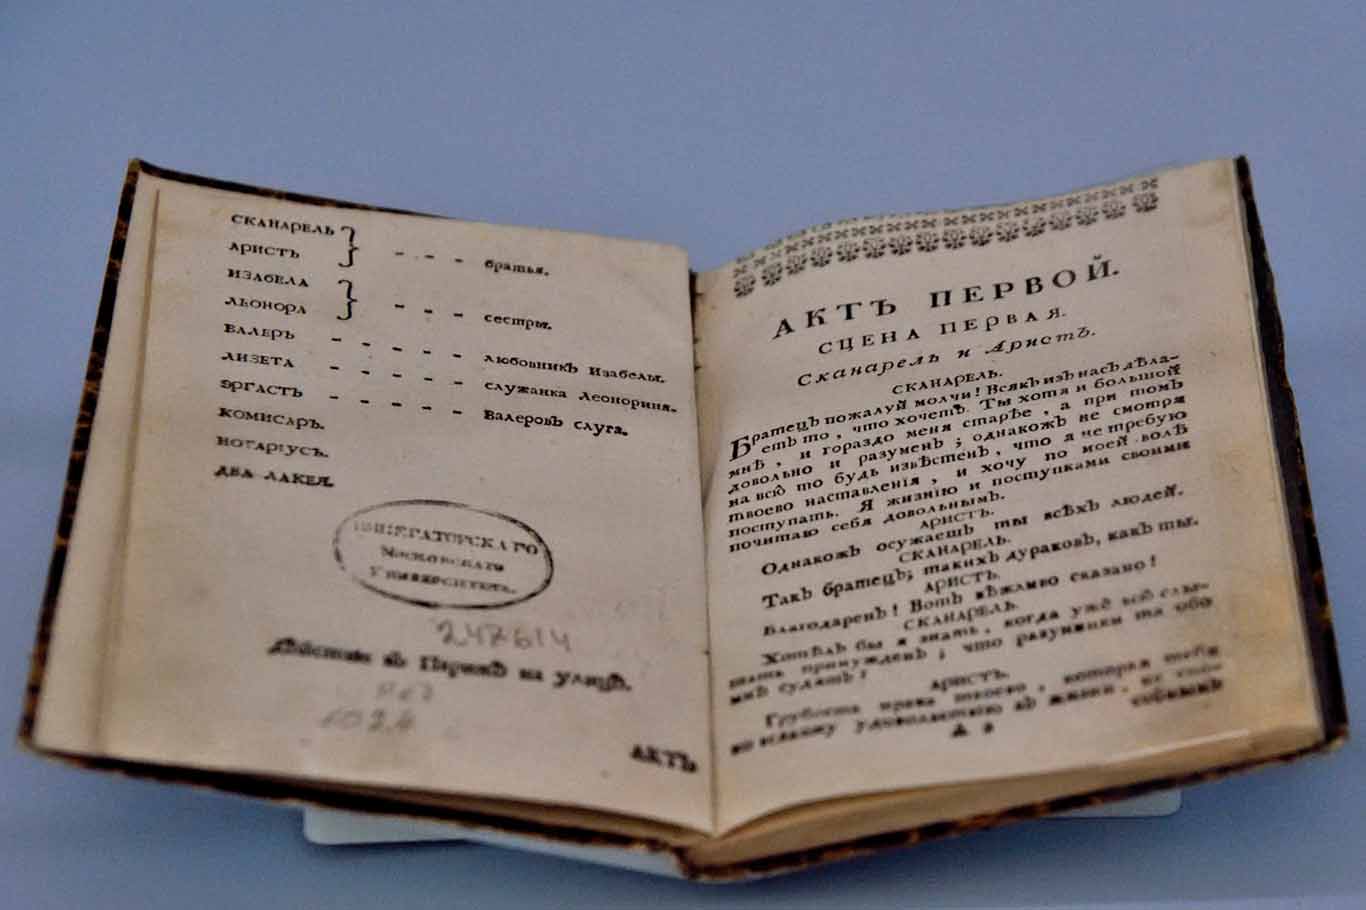 СКАНАРЕЛЬ
АРИСТЪ } - - - братья.
ИЗАБЕЛА
ЛЬОНОРА } - - - сестры.
ВАЛЕРЪ - - - - - любовникъ Изабелы.
ЛИЗЕТА - - - - - служанка Леонорина.
ЭРГАСТЪ - - - - - Валеровъ слуга.
КОМИСАРЪ.
НОТАРІУСЪ.
ДВА ЛАКЕЯ.
ИМПЕРАТОРСКАГО
Московскаго
Университета.
247614
Дѣйствіе въ Парижѣ на улицѣ.
АКТЪ
АКТЪ ПЕРВОЙ.
СЦЕНА ПЕРВАЯ.
Сканарель и Аристъ.
СКАНАРЕЛЬ.
Братецъ пожалуй молчи! Всякъ изъ насъ дѣла-
етъ то, что хочетъ. Ты хотя и большой
мнѣ, и гораздо меня старѣе, а при томъ
довольно и разуменъ; однакожъ не смотря
на всіо то будь извѣстенъ, что я не требую
твоево наставленія, и хочу по моей волѣ
поступать. Я жизнію и поступками своими
почитаю себя довольнымъ.
АРИСТЪ.
Однакожъ осуждаешъ ты всѣхъ людей.
СКАНАРЕЛЬ.
Такъ братецъ; такихъ дураковъ, какъ ты.
АРИСТЪ.
Благодаренъ! Вотъ вѣжливо сказано!
СКАНАРЕЛЬ.
Хотѣлъ бы я знать, когда уже всіо слы-
шать принужденъ; что разумники та обо
мнѣ судятъ?
АРИСТЪ.
Грубость нрава твоево, которая тебя
ко всякому удовольствію въ жизни, не спо-
собнымъ